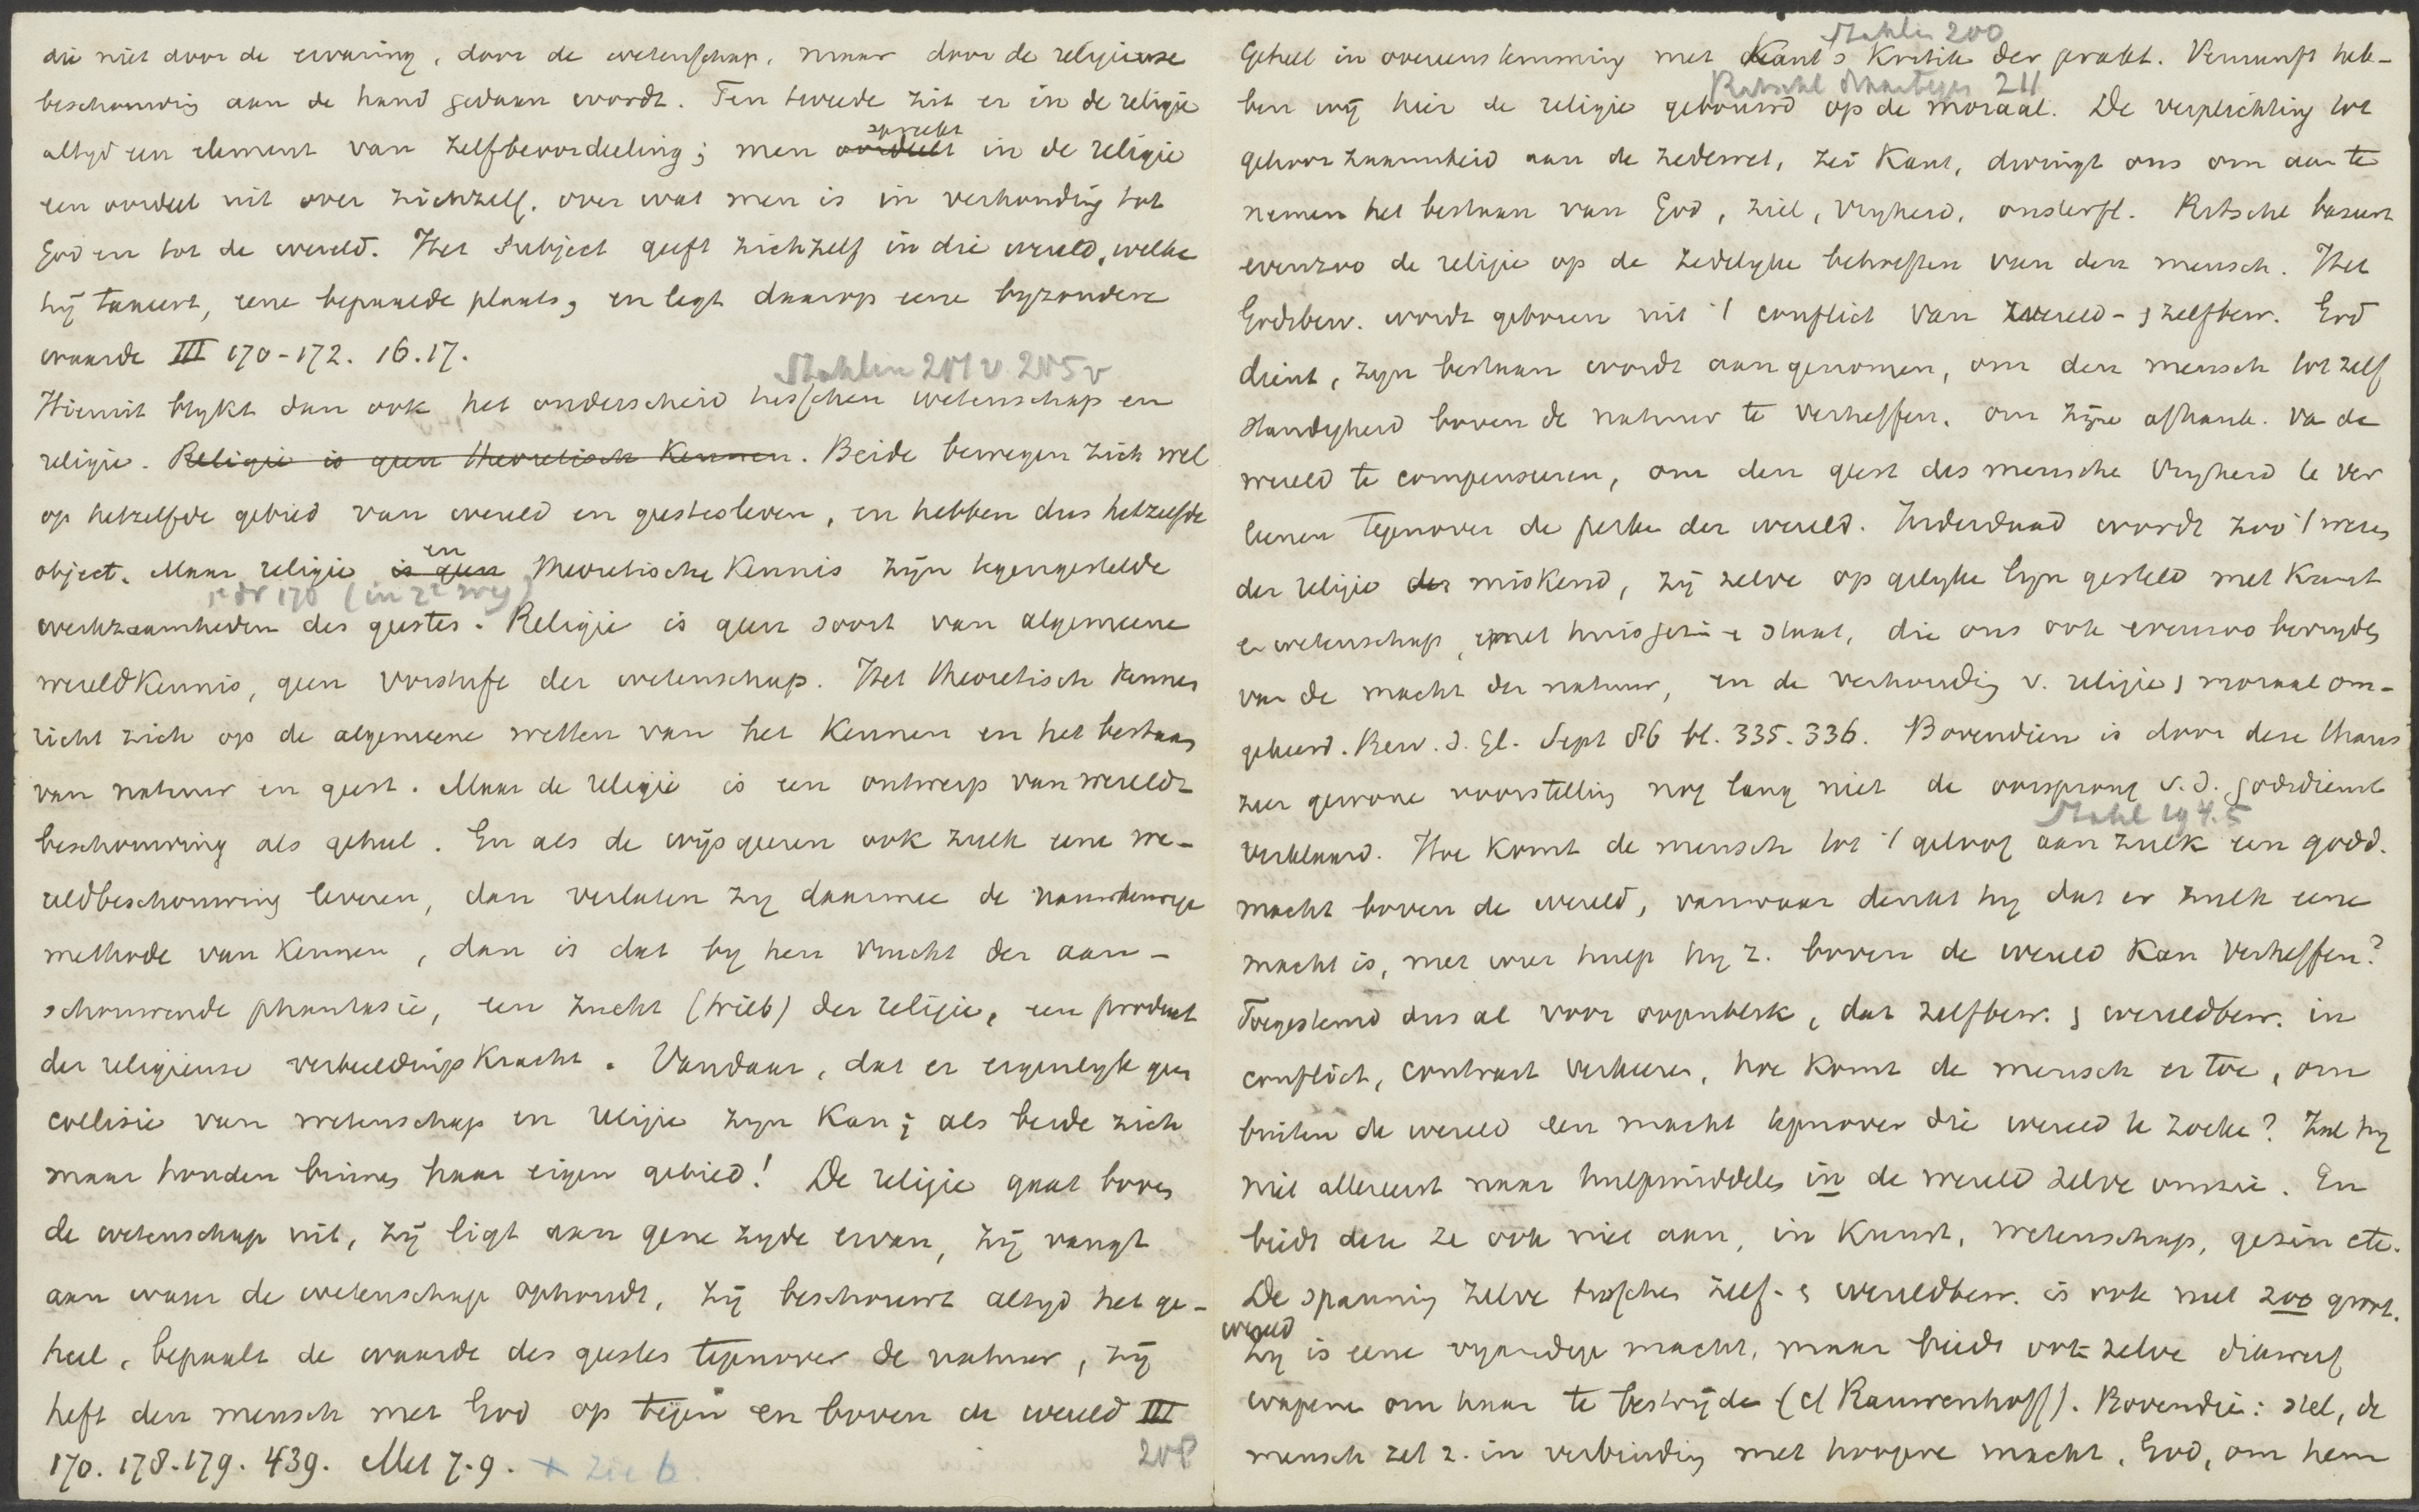 die niet door de ervaring, door de wetenschap, maar door de religieuse
beschouwing aan de hand gedaan wordt. Ten tweede zit er in de religie
spreekt
altyd een element van zelfbeoordeeling; men oordeelt in de religie
een oordeel uit over zichzelf, over wat men is in verhouding tot
God en tot de wereld. Het subject geeft zichzelf in die wereld, welke
hij taxeert, eene bepaalde plaats, en legt daarop eene byzondere
waarde III 170-172. 16.17.
Stahlin 201 v 205 v
Hieruit blykt dan ook het onderscheid tusschen wetenschap en
religie. Religie is geen theoretisch kennen. Beide bewegen zich wel
op hetzelfde gebied van wereld en geestesleven, en hebben dus hetzelfde
en
object. Maar religie is geen theoretische kennis zijn tegengestelde
werkzaamheden des geestes. Religie is geen soort van algemeene
wereldkennis, geen vorstufe der wetenschap. Het theoretisch kennen
richt zich op de algemeene wetten van het kennen en het bestaan
van natuur en geest. Maar de religie is een ontwerp van wereld-
beschouwing als geheel. En als de wijsgeeren ook zulk eene we-
reldbeschouwing leveren, dan verlaten zy daarmee de nauwkeurige
methode van kennen, dan is dat by hen vrucht der aan-
schouwende phantasie, een zucht (trieb) der religie, een product
der religieuse verbeeldingskracht. Vandaar, dat er eigenlyk geen
collisie van wetenschap en religie zyn kan; als beide zich
maar houden binnen haar eigen gebied! De religie gaat boven
de wetenschap uit, zij ligt aan gene zyde ervan, zij vangt
aan waar de wetenschap ophoudt, zij beschouwt altyd het ge-
heel, bepaalt de waarde des geestes tegenover de natuur, zij
heft den mensch met God op tegen en boven de wereld III
170. 178-179. 439. Met 7.9. x Zie b. 208
Stahlin 200
Geheel in overeenstemming met Kant's Kritik der prakt. Vernunft heb-
211
ben wij hier de religie gebouwd op de moraal. De verplichting tot
gehoorzaamheid aan de zedewet, zei Kant, dwingt ons om aan te
nemen het bestaan van God, ziel, vryheid, onsterfl. Ritschl baseert
evenzoo de religie op de zedelyke behoeften van den mensch. Het
Godsbew. wordt geboren uit 't conflict van wereld- & zelfbew. God
dient, zyn bestaan wordt aangenomen, om den mensch tot zelf
standigheid boven de natuur te verheffen, om zijne afhank. va de
wereld te compenseeren, om den geest des mensche vryheid te ver
leenen tegenover de perke der wereld. Inderdaad wordt zoo 't wezen
der religie miskend, zij zelve op gelyke lyn gesteld met kunst
e wetenschap, met huisgezin e staat, die ons ook evenzoo bevryden
van de macht der natuur, en de verhouding v. religie & moraal om-
gekeerd. Bew. d. Gl. Sept 86 bl. 335.336. Bovendien is door deze thans
zeer gewone voorstelling nog lang niet de oorsprong v.d. godsdienst
Stahl 194.5
verklaard. Hoe komt de mensch tot 't geloof aan zulk een godd.
macht boven de wereld, vanwaar denkt hy dat er zulk eene
macht is, met wier hulp hy z. boven de wereld kan verheffen?
Toegestemd dus al voor oogenblik, dat zelfbew. & wereldbew. in
conflict, contrast verkeeren, hoe komt de mensch er toe, om
buiten de wereld een macht tegenover die wereld te zoeke? Zal hy
niet allereerst naar hulpmiddelen in de wereld zelve omzie. En
biedt deze ze ook niet aan, in kunst, wetenschap, gezin etc.
De spanning zelve tusschen zelf- & wereldbew. is ook niet zoo groot.
wereld
Zy is eene vyandige macht, maar biedt ook zelve dikwerf
wapene om haar te bestrijde (cf Rauwenhoff). Bovendie: stel, de
mensch zet z. in verbinding met hoogere macht, God, om hem